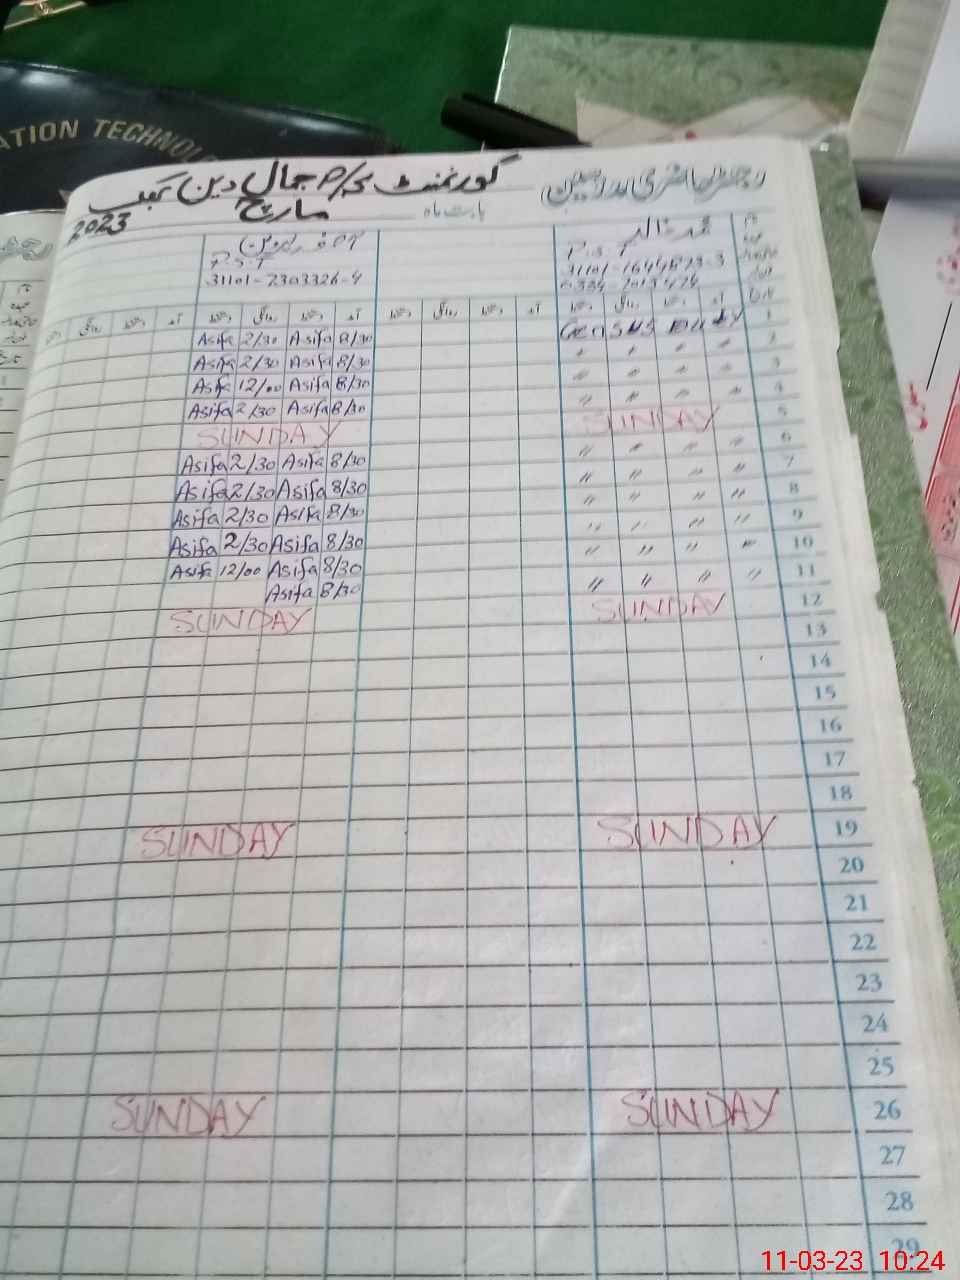 ATION TECHNOLO
رجسٹر حاضری مدرسین
گورنمنٹ جمال دین
بابت ماہ مارچ 2023
P.S.T
31101-1644523-3
P.S.T
31101-2303326-4
1 Census Duty Asifa 8/30 Asifa 2/30
2 " " " " Asifa 8/30 Asifa 2/30
3 " " " " Asifa 8/30 Asifa 12/00
4 " " " " Asifa 8/30 Asifa 2/30
5 SUNDAY SUNDAY
6 " " " " Asifa 8/30 Asifa 2/30
7 " " " " Asifa 8/30 Asifa 2/30
8 " " " " Asifa 8/30 Asifa 2/30
9 " " " " Asifa 8/30 Asifa 2/30
10 " " " " Asifa 8/30 Asifa 12/00
11 " " " " Asifa 8/30
12 SUNDAY SUNDAY
13
14
15
16
17
18
19 SUNDAY SUNDAY
20
21
22
23
24
25
26 SUNDAY SUNDAY
27
28
29
11-03-23 10:24